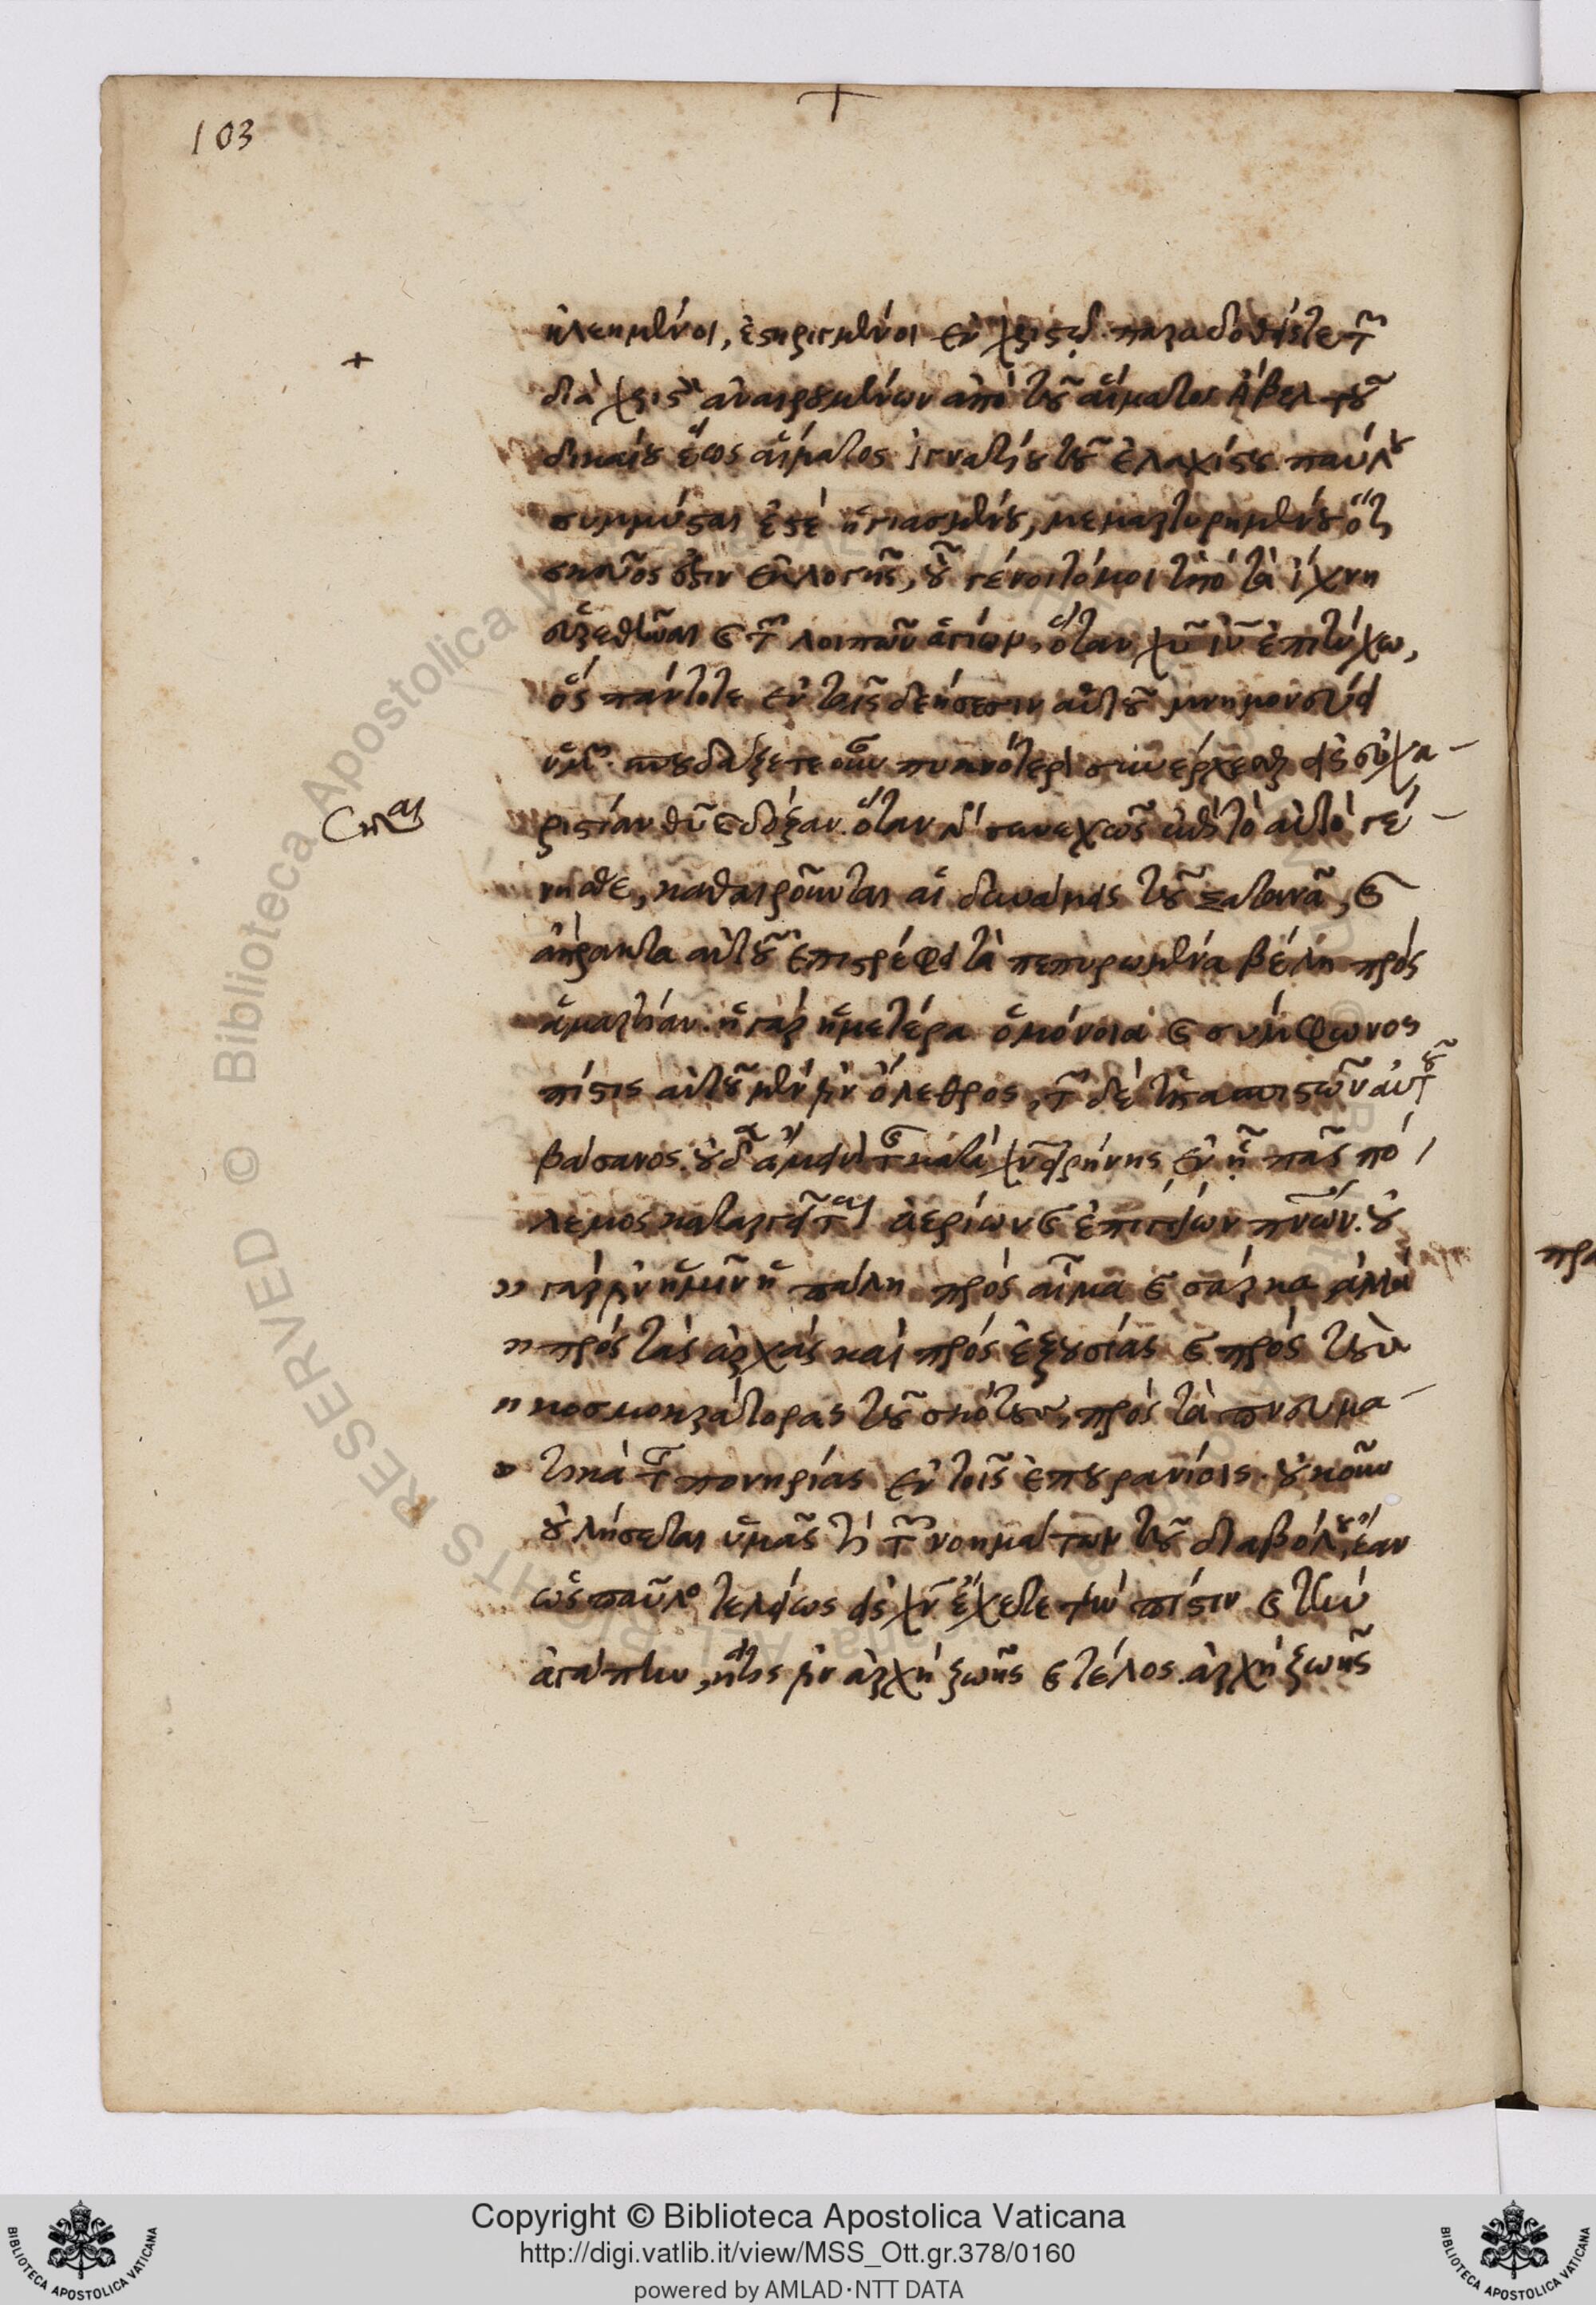 103
ἠλεημένοι, ἐστηριγμένοι ἐν χριστῷ. παραδοθέντες τῶν
διὰ χριστὸν ἀναιρουμένων ἀπὸ τοῦ αἵματος Ἄβελ τοῦ
δικαίου ἕως αἵματος ἰγνατίου τοῦ ἐλαχίστου. παύλου
συμμύσται ἐστὲ ἡγιασμένου, μεμαρτυρημένου ὅτι
σκεῦος ἐστιν ἐκλογῆς, οὗ γένοιτό μοι ὑπὸ τὰ ἴχνη
εὑρεθῶναι καὶ τῶν λοιπῶν ἁγίων, ὅταν χῦ ἰῦ ἐπιτύχω,
ὅς πάντοτε ἐν ταῖς δεήσεσιν αὐτοῦ μνημονεύει
ὑμῶν. σπουδάζετε οὖν πυκνότερον συνέρχεσθαι εἰς εὐχα-
ριστίαν θῦ καὶ δόξαν. ὅταν γὰρ συνεχῶς ἐπὶ τὸ αὐτὸ γέ-
νησθε, καθαιροῦνται αἱ δυνάμεις τοῦ Σατανᾶ, καὶ
ἄπρακτα αὐτοῦ ἐπιστρέφει τὰ πεπυρωμένα βέλη πρὸς
ἁμαρτίαν. ἡ γὰρ ἡμετέρα ὁμόνοια καὶ σύμφωνος
πίστις αὐτοῦ μέν ἐστιν ὄλεθρος, τῶν δὲ ὑπασπιστῶν αὐτοῦ
βάσανος. οὐδὲν ἄμεινον τῆς κατὰ χν εἰρήνης ἐν ᾗ πᾶς πό-
λεμος καταργεῖται ἀερίων καὶ ἐπιγείων πνῶν. οὐ
γάρ ἐστιν ἡμῖν ἡ πάλη πρὸς αἷμα καὶ σάρκα ἀλλὰ
πρὸς τὰς ἀρχὰς καὶ πρὸς ἐξουσίας καὶ πρὸς τοὺς
κοσμοκράτορας τοῦ σκότους, πρὸς τὰ πνευμα-
τικὰ τῆς πονηρίας ἐν τοῖς ἐπουρανίοις. οὐκοῦν
οὐ λήσεται ὑμᾶς τὶ τῶν νοημάτων τοῦ διαβόλου, ἐὰν
ὡς παῦλος τελείως εἰς χν ἔχετε τὴν πίστιν καὶ τὴν
ἀγάπην, ἥτις ἐστιν ἀρχὴ ζωῆς καὶ τέλος. ἀρχὴ ζωῆς
Copyright © Biblioteca Apostolica Vaticana
http://digi.vatlib.it/view/MSS_Ott.gr.378/0160
powered by AMLAD·NTT DATA